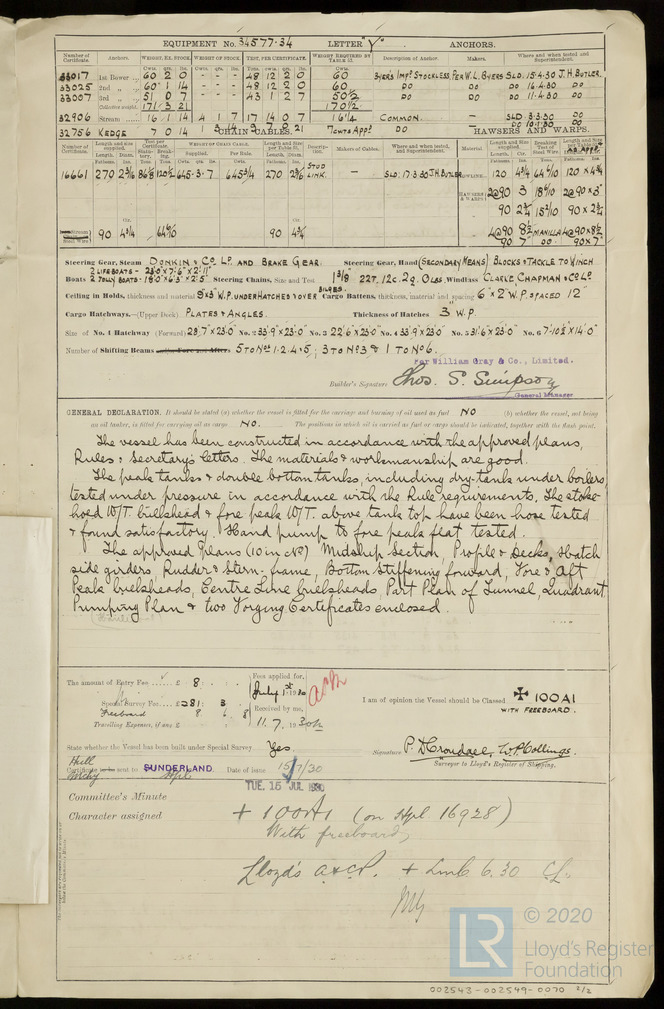 EQUIPMENT No. 34577.34 LETTER "Y" ANCHORS.
Number of Certificate. Anchors. WEIGHT, EX. STOCK. WEIGHT OF STOCK. TEST, PER CERTIFICATE. WEIGHT REQUIRED BY TABLE 53. Description of Anchor. Makers. Where and when tested and Superintendent.
Cwts. qrs. lbs. Cwts. qrs. lbs. Tons. Cwts. qrs. lbs. Cwts.
33017 1st Bower 60 2 0 - - - 48 12 2 0 60 BYERS IMPD STOCKLESS. PER W.L. BYERS SLD. 15.4.30 J.H. BUTLER.
33025 2nd " 60 1 14 - - - 48 12 2 0 60 DO DO DO 16.4.30 DO
33007 3rd " 51 0 7 - - - 43 1 2 7 50½ DO DO DO 11.4.30 DO
Collective weight. 171 3 21 170½
32906 Stream 16 1 14 4 1 7 17 14 0 7 16¼ COMMON. — SLD 3.3.30 DO
32756 KEDGE 7 0 14 7 CWTS APPD DO — DO 10.1.30 DO
CHAIN CABLES. HAWSERS AND WARPS.
Number of Certificate. Length and size supplied. Test per Certificate. WEIGHT OF CHAIN CABLE. Length and size per Table 53. Description. Makers of Cables. Where and when tested, and Superintendent. Material Length and size supplied. Breaking Test of Steel Wire.
16661 270 2 3/16 645.3.7 645¾ 270 2 3/16 STUD LINK. — SLD. 17.3.30 J.H. BUTLER 120 4¾ 120 x 4¾
HAWSERS & WARPS 2@90 3 2@90 x 3"
90 2¾ 90 x 2¾
90 4¾ 90 4¾ 4@90 8½ MANILLA 4@90 x 8½
90 7" DO 90 x 7"
Steering Gear, Steam DONKIN & CO LD AND BRAKE GEAR. Steering Gear, Hand (SECONDARY MEANS) BLOCKS & TACKLE TO WINCH
2 LIFEBOATS - 23.0 x 7.6 x 2.11
Boats 2 JOLLY BOATS - 18.0 x 6.3 x 2.5 Steering Chains, Size and Test 1 3/16 22T. 12c. 2q. 0 LBS. Windlass CLARKE, CHAPMAN & CO LD
Ceiling in Holds, thickness and material W.P. UNDER HATCHES & OVER BILGES. Cargo Battens, thickness, material and spacing 6" x 2" W.P. SPACED 12"
Cargo Hatchways.—(Upper Deck). PLATES & ANGLES. Thickness of Hatches 3" W.P.
Size of No. 1 Hatchway (Forward) 28.7 x 23.0 No. 2 33.9 x 23.0 No. 3 22.6 x 23.0 No. 4 33.9 x 23.0 No. 5 31.6 x 23.0 No. 6 7-10½ x 14.0
Number of Shifting Beams 5 TO NOS 1.2.4.5; 3 TO NO 3 & 1 TO NO 6.
For William Gray & Co., Limited.
Builder's Signature Thos. S. Simpson
General Manager
GENERAL DECLARATION. It should be stated (a) whether the vessel is fitted for the carriage and burning of oil used as fuel NO (b) whether the vessel, not being
an oil tanker, is fitted for carrying oil as cargo NO. The positions in which oil is carried as fuel or cargo should be indicated, together with the flash point.
The vessel has been constructed in accordance with the approved plans,
Rules & Secretary's letters. The materials & workmanship are good.
The peak tanks & double bottom tanks, including dry-tank under boilers,
tested under pressure in accordance with the Rule requirements. The stoke-
hold W/T bulkhead & fore peak W/T. above tank top have been hose tested
& found satisfactory. Hand pump to fore peak flat tested.
The approved plans (10 in No) Midship Section, Profile & Decks, Hatch
side girders, Rudder & Stern-frame, Bottom Stiffening forward, Fore & Aft
Peak bulkheads, Centre Line bulkheads, Part Plan of Tunnel, Quadrant,
Pumping Plan & two Forging Certificates enclosed.
The amount of Entry Fee £ 8 : :
Special Survey Fee £ 281 : 3 :
Freeboard 8 6 8
Travelling Expenses, if any £
Fees applied for, July 1st 1930
Received by me, 11.7.1930
I am of opinion the Vessel should be Classed ✠ 100A1
WITH FREEBOARD.
State whether the Vessel has been built under Special Survey Yes
Signature P. D. Crondace, W. P. Collings.
Surveyor to Lloyd's Register of Shipping.
Hull
Certificate to be sent to SUNDERLAND. Date of issue 15/7/30
TUE. 15 JUL 1930
Committee's Minute
Character assigned + 100A1 (on Hpl 16928)
With freeboard,
Lloyd's A&CP. + LMC 6.30 CL.
© 2020
LR Lloyd's Register
Foundation
002543-002549-0070 2/2